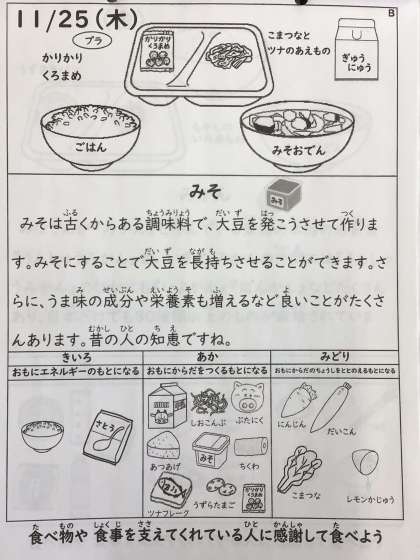 11/25(木)
B
プラ
かりかり
くろまめ
かりかり
くろまめ
こまつなと
ツナのあえもの
ぎゅう
にゅう
ごはん
みそおでん
みそ
みそ
みそは古くからある調味料で、大豆を発こうさせて作りま
す。みそにすることで大豆を長持ちさせることができます。さ
らに、うま味の成分や栄養素も増えるなど良いことがたくさ
んあります。昔の人の知恵ですね。
きいろ
あか
みどり
おもにエネルギーのもとになる
おもにからだをつくるもとになる
おもにからだのちょうしをととのえるもとになる
さとう
しおこんぶ
ぶたにく
あつあげ
みそ
ちくわ
ツナフレーク
うずらたまご
かりかり
くろまめ
にんじん
だいこん
こまつな
レモンかじゅう
食べ物や 食事を支えてくれている人に感謝して食べよう